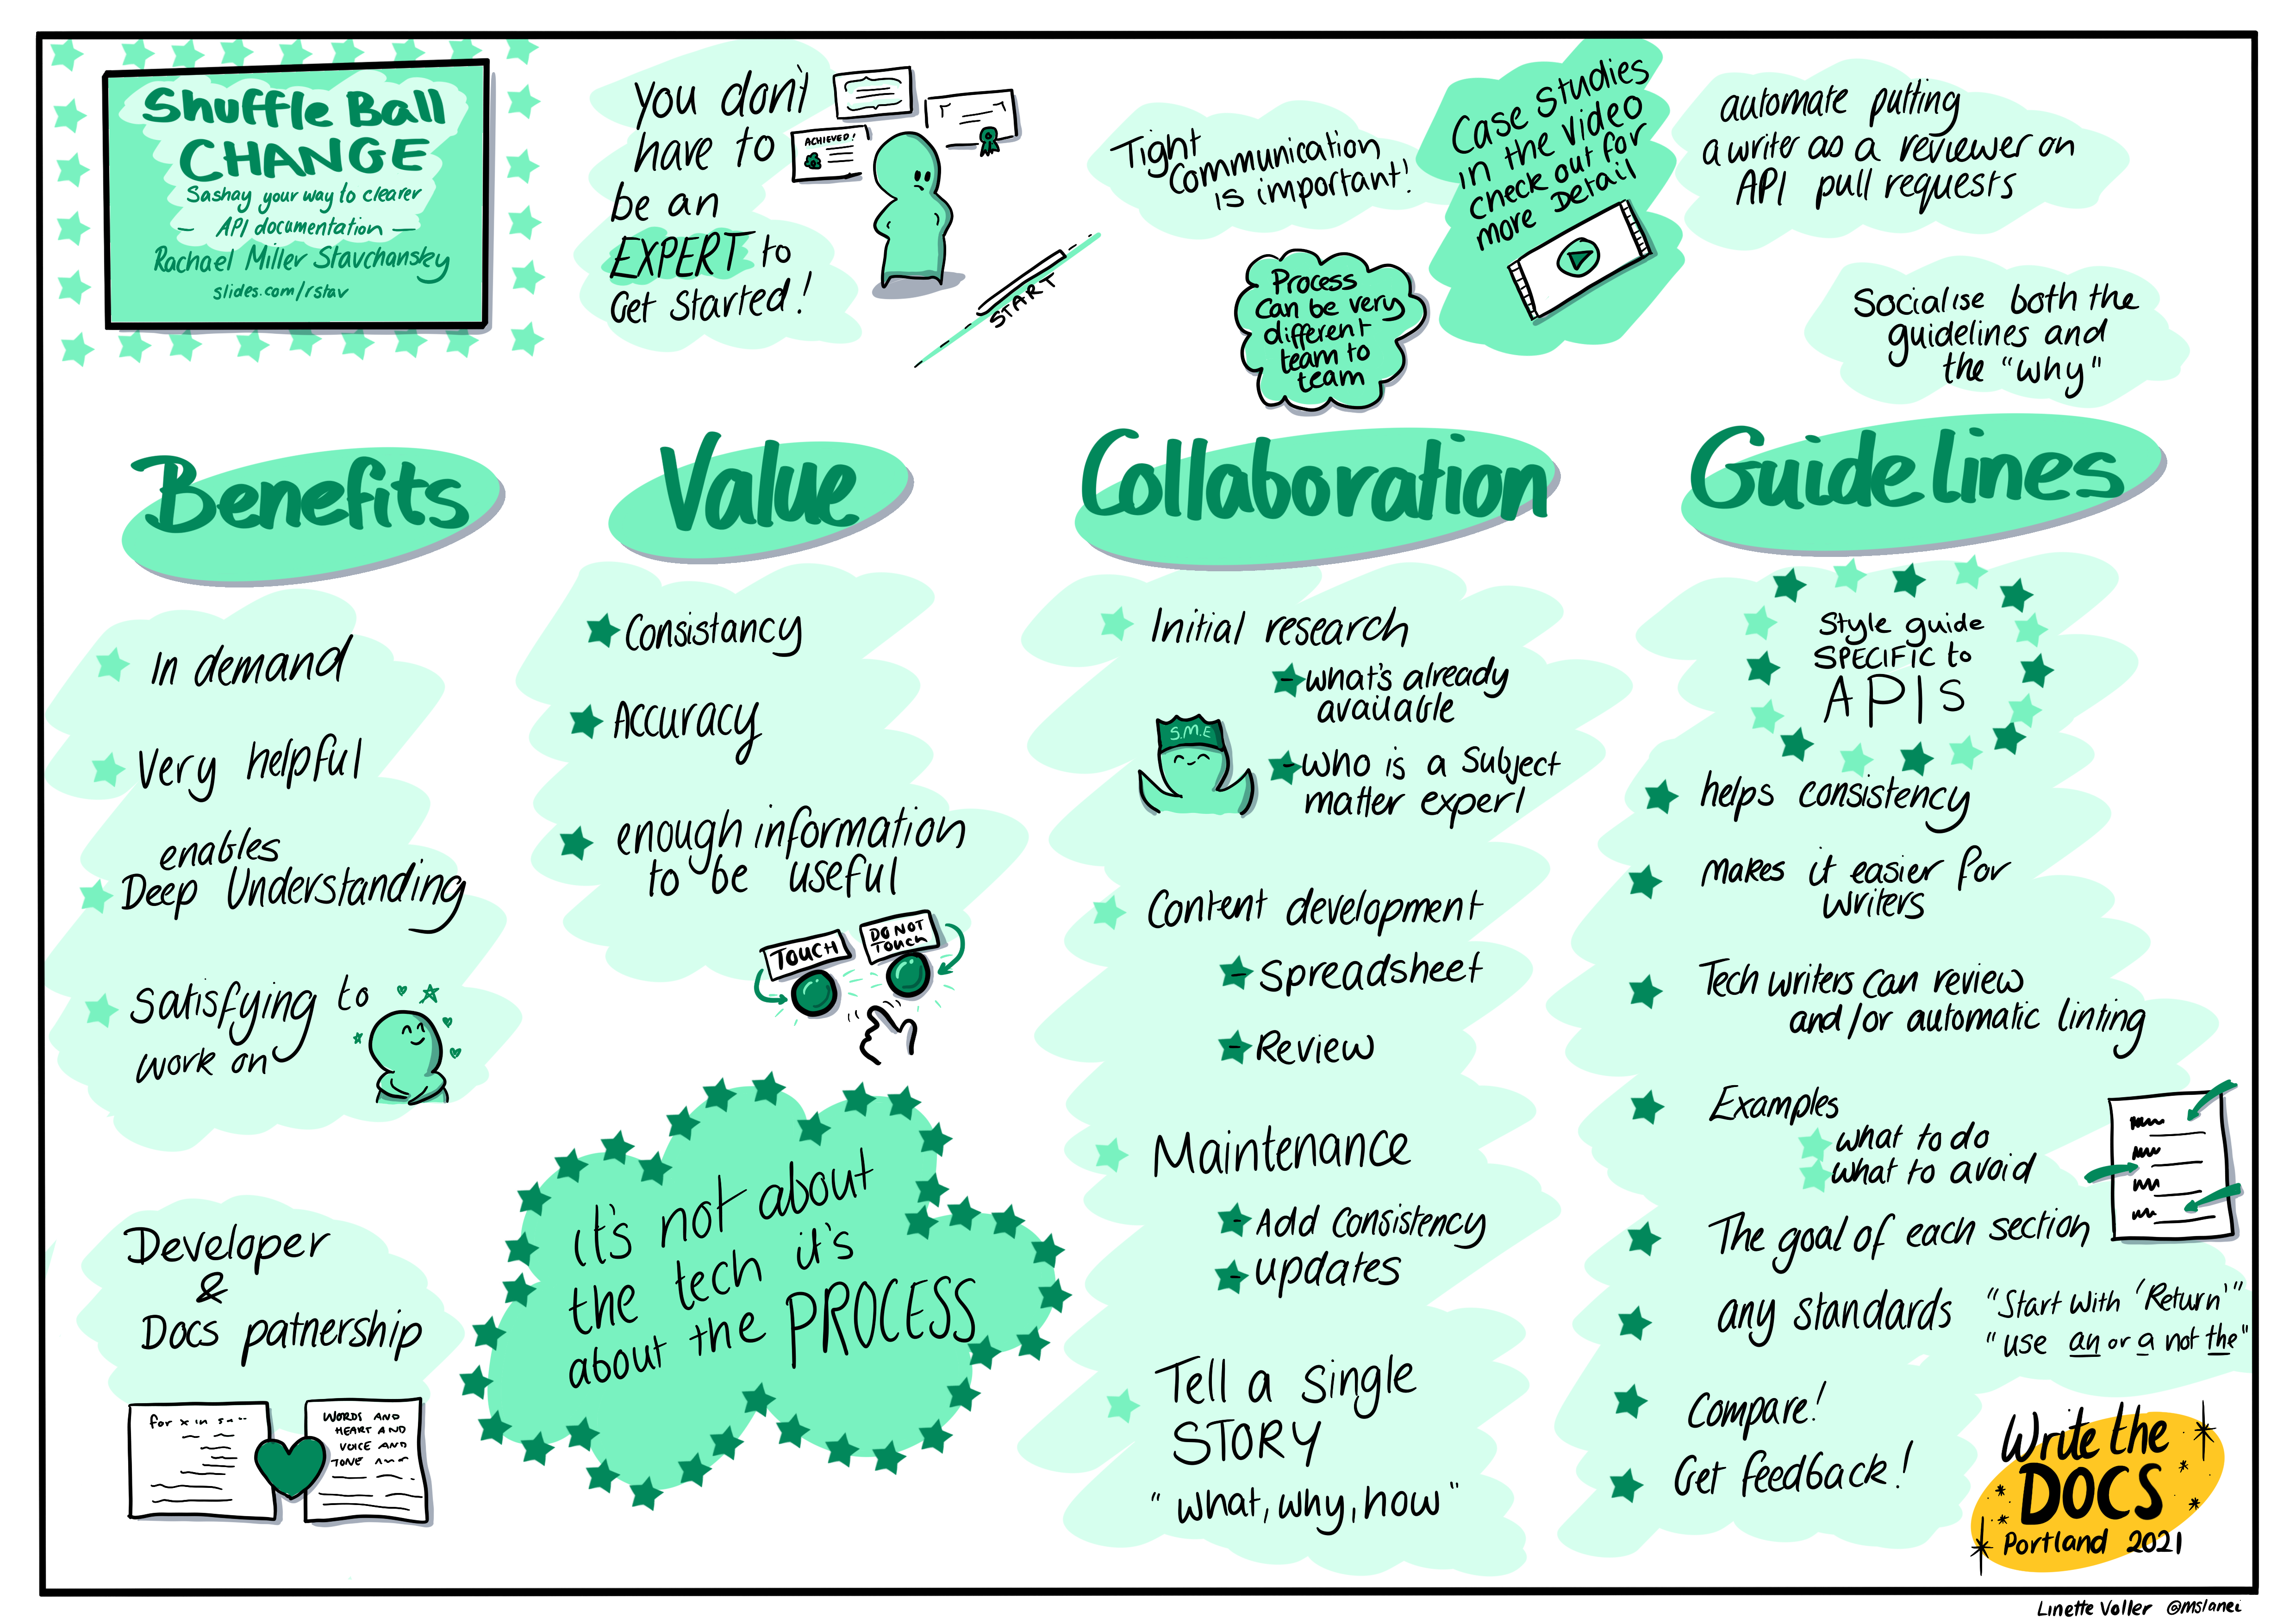 Shuffle Ball
CHANGE
Sashay your way to clearer
— API documentation —
Rachael Miller Stavchansky
slides.com/rstav
You don't
have to
be an
EXPERT to
Get Started!
ACHIEVED!
START
Tight
Communication
is important!
Process
Can be very
different
team to
team
Case Studies
in the video
check out for
more Detail
automate putting
a writer as a reviewer on
API pull requests
Socialise both the
guidelines and
the "why"
Benefits
In demand
Very helpful
enables
Deep Understanding
Satisfying to
work on
Developer
&
Docs patnership
for x in
WORDS AND
HEART AND
VOICE AND
TONE
Value
Consistancy
Accuracy
enough information
to be useful
TOUCH
DO NOT
Touch
it's not about
the tech it's
about the PROCESS
Collaboration
Initial research
- what's already
available
S.M.E
- who is a subject
matter expert
Content development
- Spreadsheet
- Review
Maintenance
- Add consistency
- updates
Tell a single
STORY
"what, why, how"
Guidelines
Style guide
SPECIFIC to
APIS
helps consistency
makes it easier for
writers
Tech writers can review
and/or automatic linting
Examples
what to do
what to avoid
The goal of each section
any standards
"Start with 'Return'"
"use an or a not the"
Compare!
Get feedback!
Write the
DOCS
Portland 2021
Linette Voller @mslanei